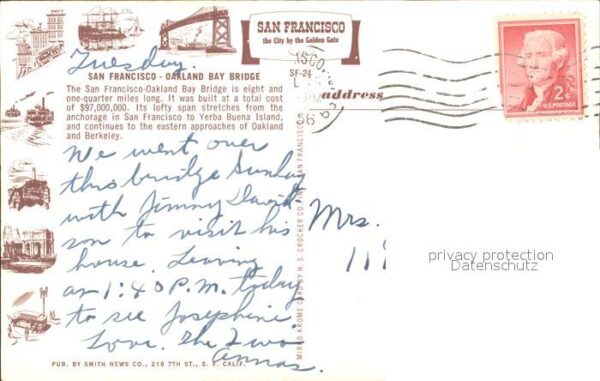 SAN FRANCISCO
the City by the Golden Gate
Tuesday.
SAN FRANCISCO - OAKLAND BAY BRIDGE
The San Francisco-Oakland Bay Bridge is eight and
one-quarter miles long. It was built at a total cost
of $97,000,000. Its lofty span stretches from the
anchorage in San Francisco to Yerba Buena Island,
and continues to the eastern approaches of Oakland
and Berkeley.
We went over
this bridge Sunday
with Jimmy David
son to visit his
house. Leaving
at 1:40 P.M. today
to see Josephine.
Love. The Two
Annas.
PUB. BY SMITH NEWS CO., 219 7TH ST., S. F. CALIF.
MIRRO-KROME CARD BY H. S. CROCKER CO. INC. SAN FRANCISCO
SF-24
PM
address
2¢
U.S. POSTAGE
Mrs.
11
privacy protection
Datenschutz